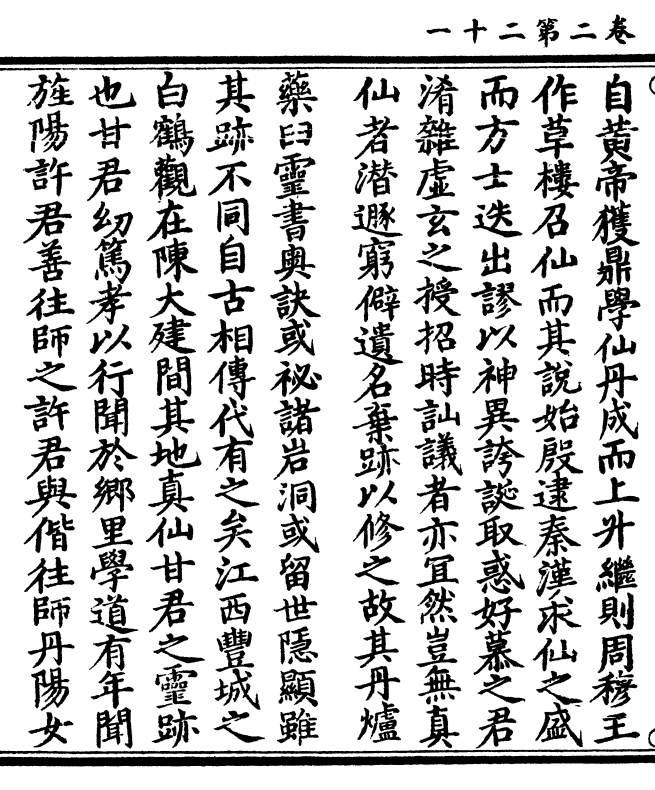 卷二第二十一
自黃帝獲鼎學仙丹成而上升繼則周穆王
作草樓召仙而其說始殷逮秦漢求仙之盛
而方士迭出謬以神異誇誕取惑好慕之君
淆雜虛玄之授招時訕議者亦宜然豈無真
仙者潛遯窮僻遺名棄跡以修之故其丹爐
藥臼靈書奧訣或祕諸岩洞或留世隱顯雖
其跡不同自古相傳代有之矣江西豐城之
白鶴觀在陳大建間其地真仙甘君之靈跡
也甘君幼篤孝以行聞於鄉里學道有年聞
旌陽許君善往師之許君與偕往師丹陽女